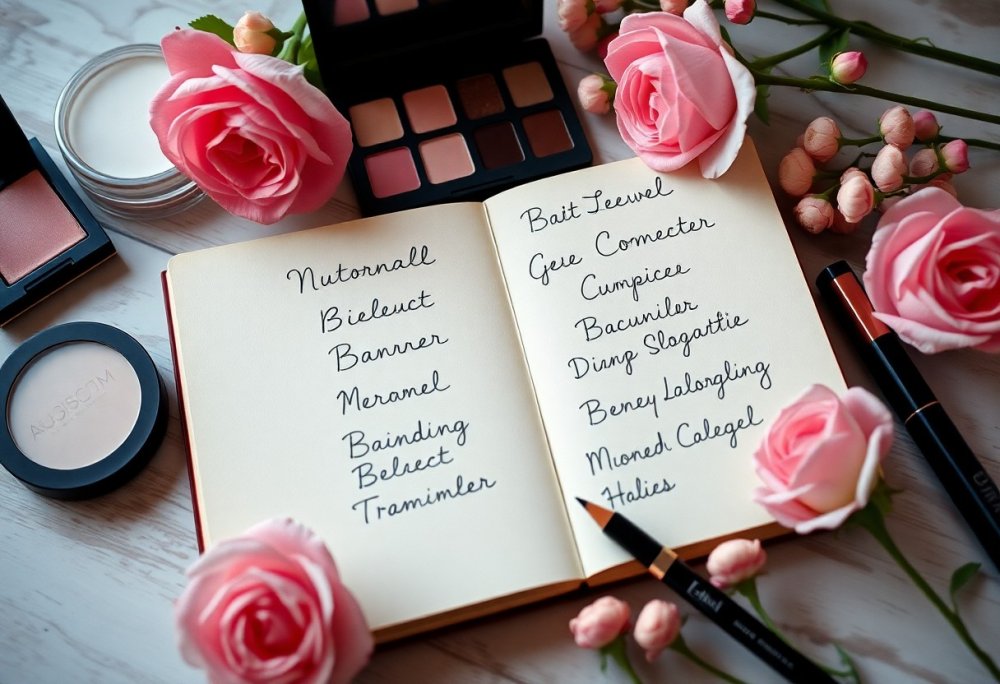 Nutornall
Bieleuct
Banrrer
Meramel
Bainding
Belrect
Tramimler
Bait Jeewel
Geue Comecter
Cumpicee
Bacuniler
Dizng Slogartie
Beney Lalorgling
Mioned Calegel
Halies